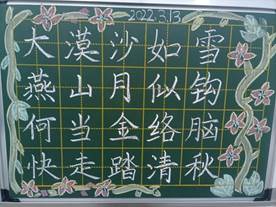 2022.3.13
大漠沙如雪
燕山月似钩
何当金络脑
快走踏清秋